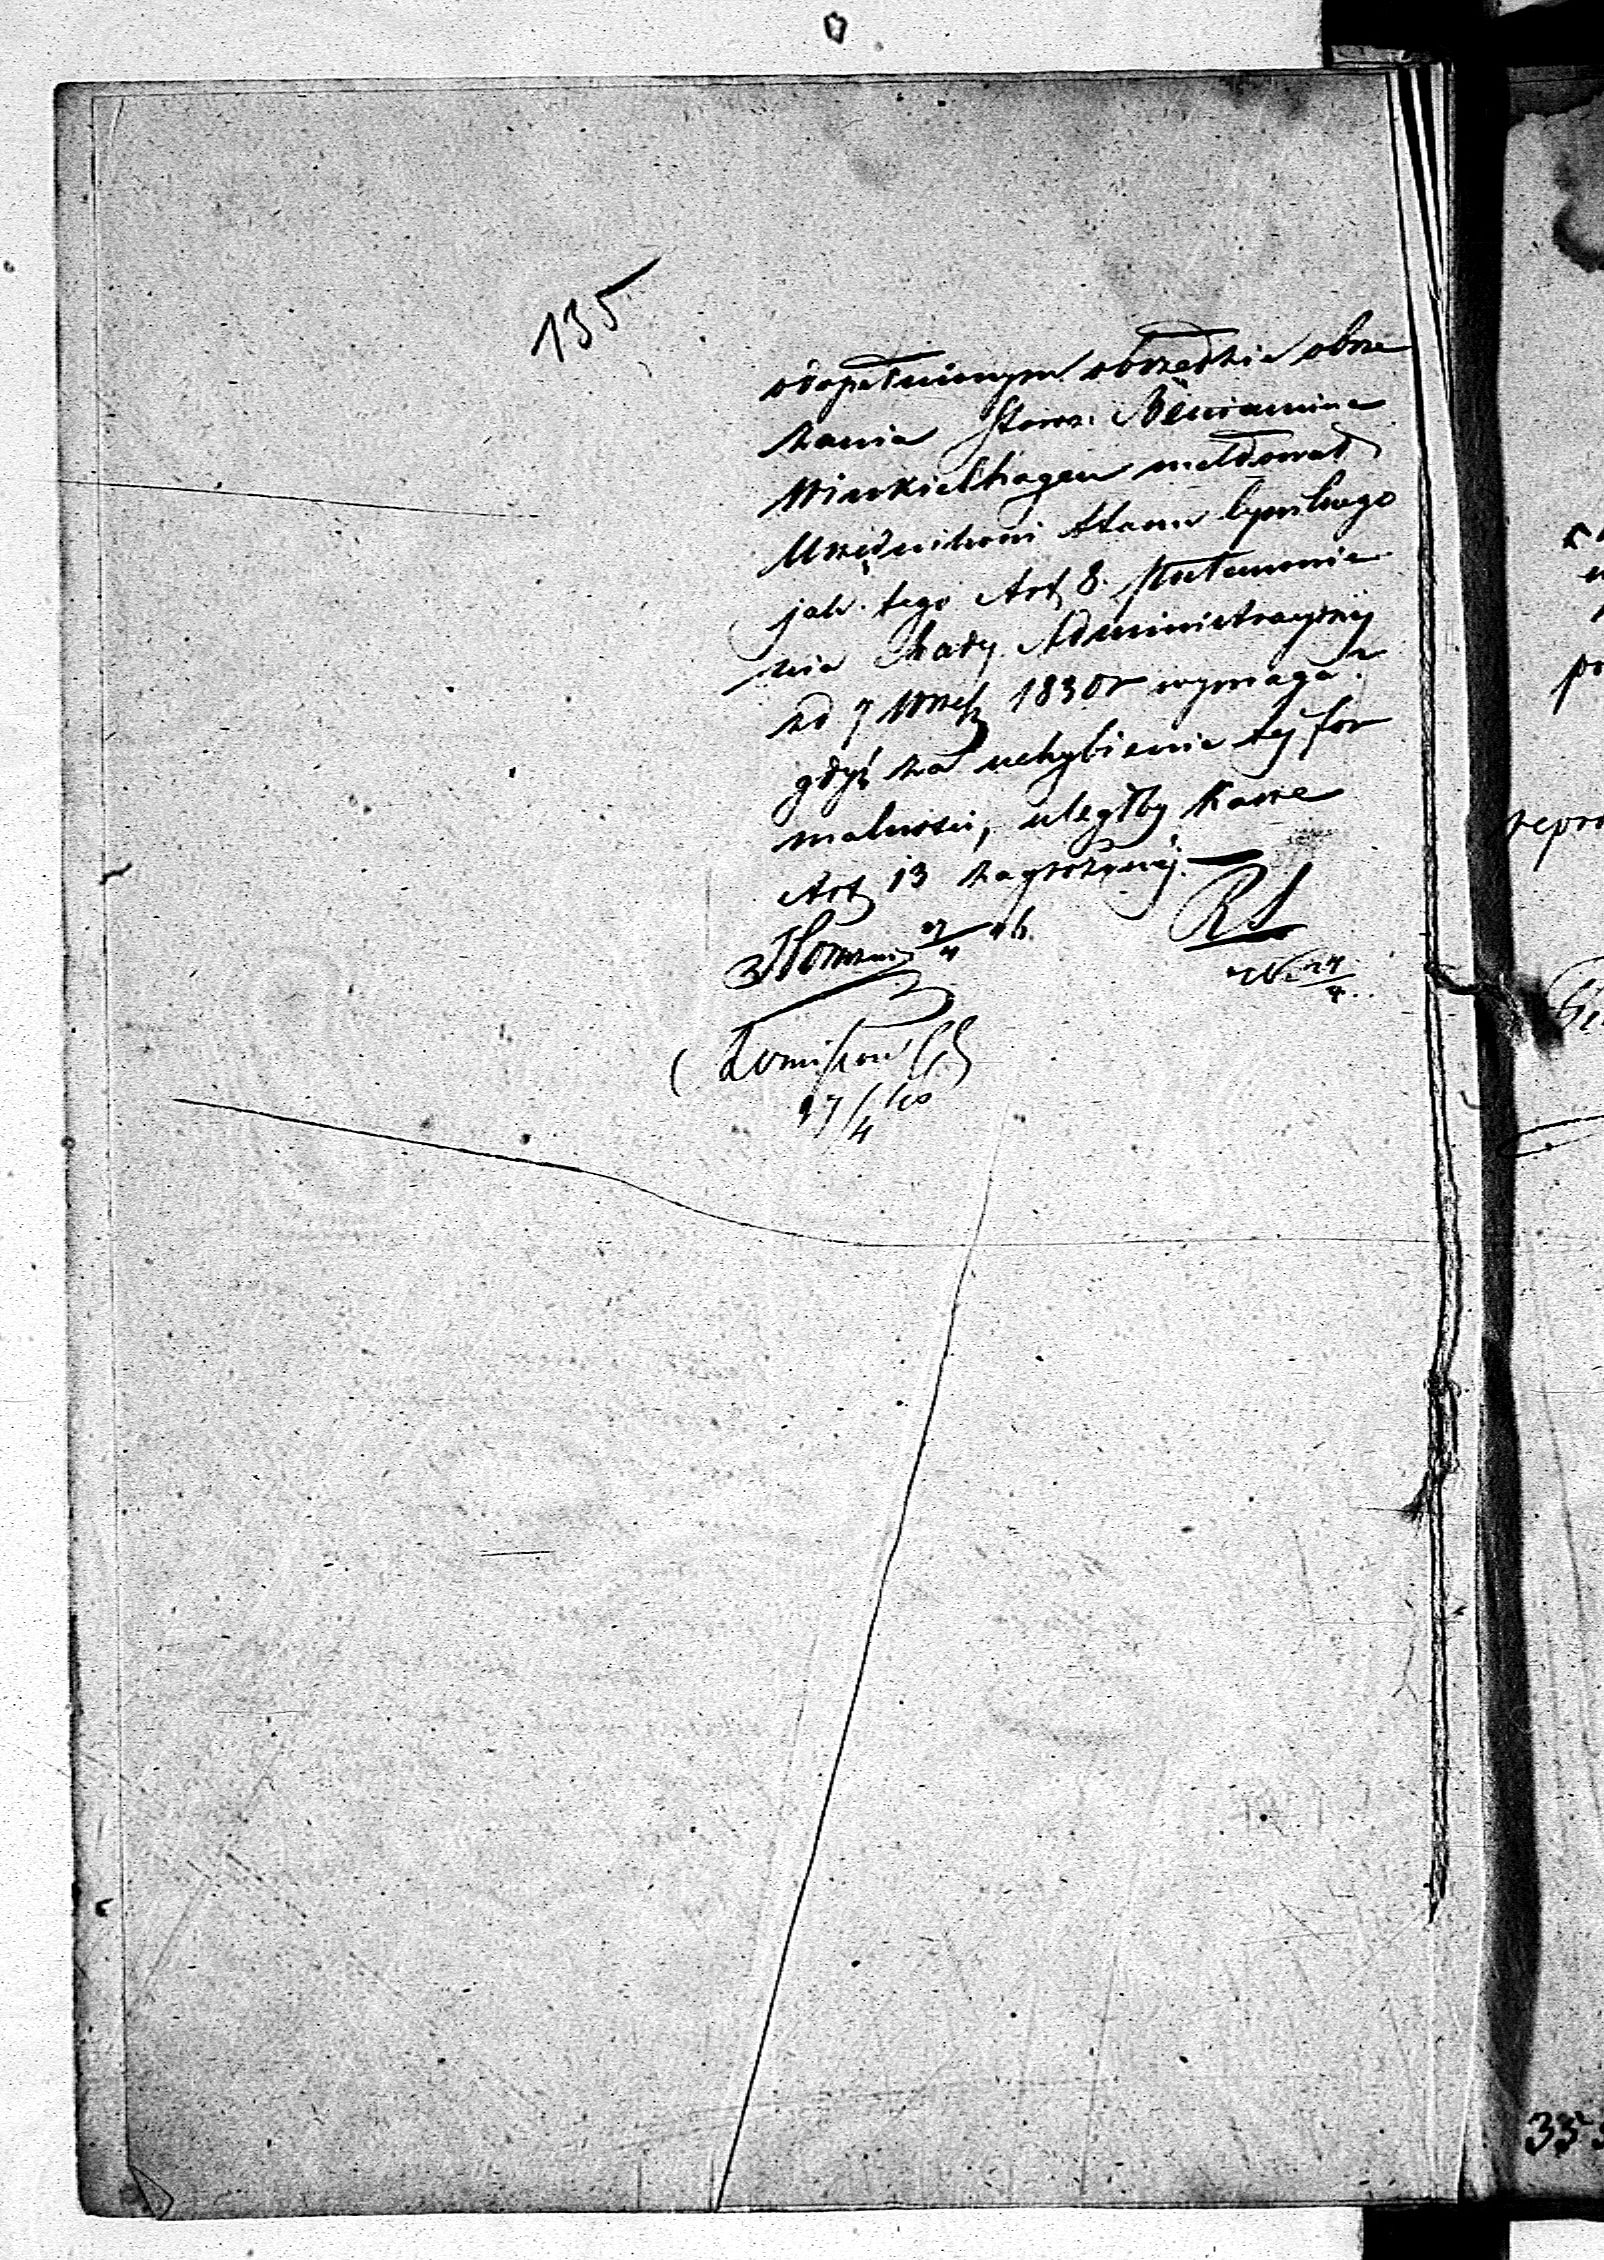 135
o dopełnionym obrzędzie obrze
zania Staroz: Beniamina
Winkielhagen meldował
Urzędnikowi Stanu Cywilnego
jak tego Art 8. Postanowie
nia Rady Administracyjnéj
zd 7 Wrześ 1830 r wymaga.
gdyż za uchybienie téj for
malności, uległby karze
Art 13 zagrożonéj.
RS
27/4
17/4